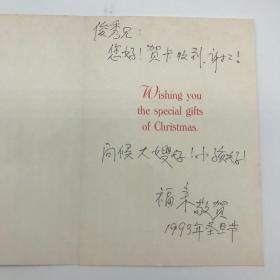 俊秀兄：
您好！贺卡收到，谢谢！
Wishing you
the special gifts
of Christmas.
问候大嫂好！小孩好！
福来
敬贺
1993年圣旦节